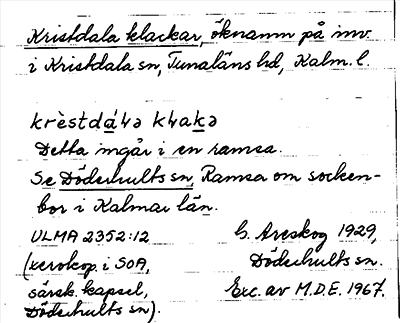 Kristdala klackar, öknamn på inv.
i Kristdala sn, Tunaläns hd, Kalm. l.
krèstdáꞎə kꞎakə
Detta ingår i en ramsa.
Se Döderhults sn, Ramsa om socken-
bor i Kalmar län.
ULMA 2352:12
(xerokop. i SOA,
särsk. kapsel,
Döderhults sn).
G. Areskog 1929,
Döderhults sn.
Exc. av M.D.E. 1967.